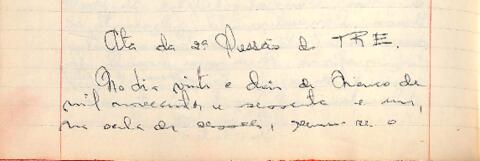 Ata da 2ª Sessão do TRE.
No dia vinte e dois de Março de
mil novecentos e sessenta e um,
na sala de sessões, reuniu-se o